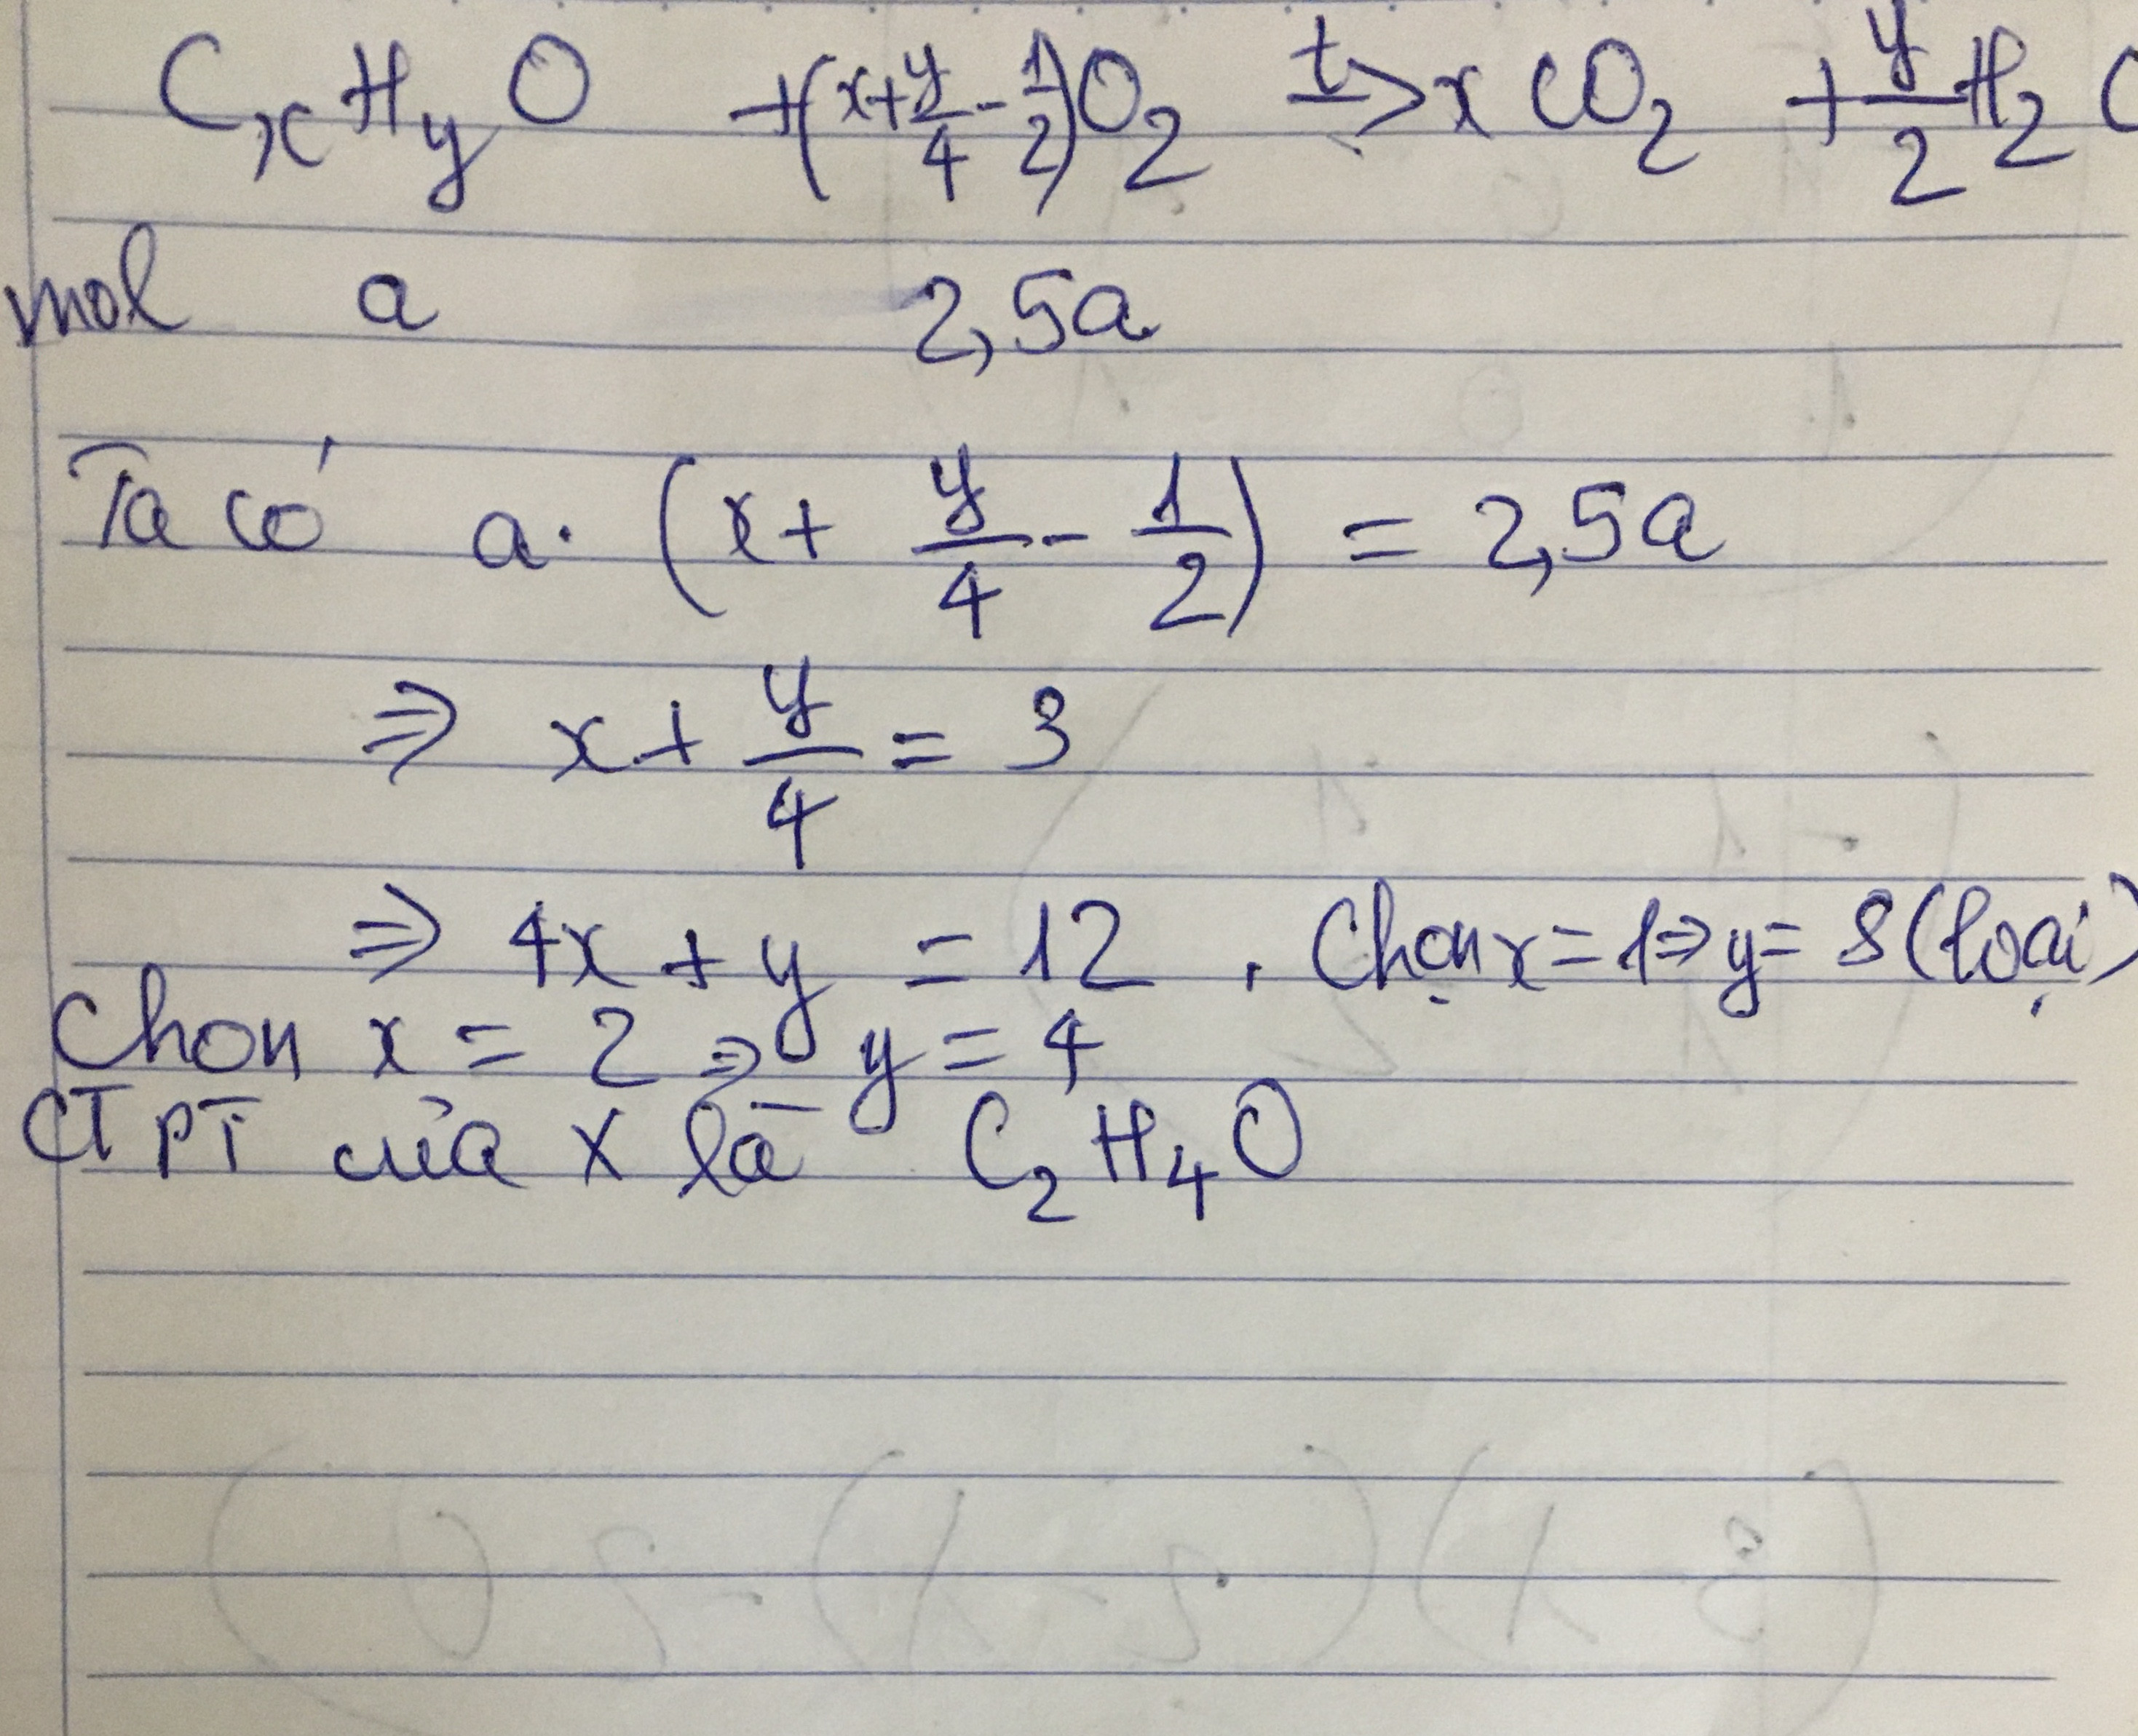 CxHyO +(x+y/4-1/2)O2 t→ xCO2 + y/2H2O
mol a 2,5a
Ta có a. (x+ y/4 - 1/2) = 2,5a
⇒ x+ y/4 = 3
⇒ 4x + y = 12 . Chọn x=1⇒y= 8 (loại)
Chon x = 2 ⇒ y = 4
CTPT của X là C2H4O